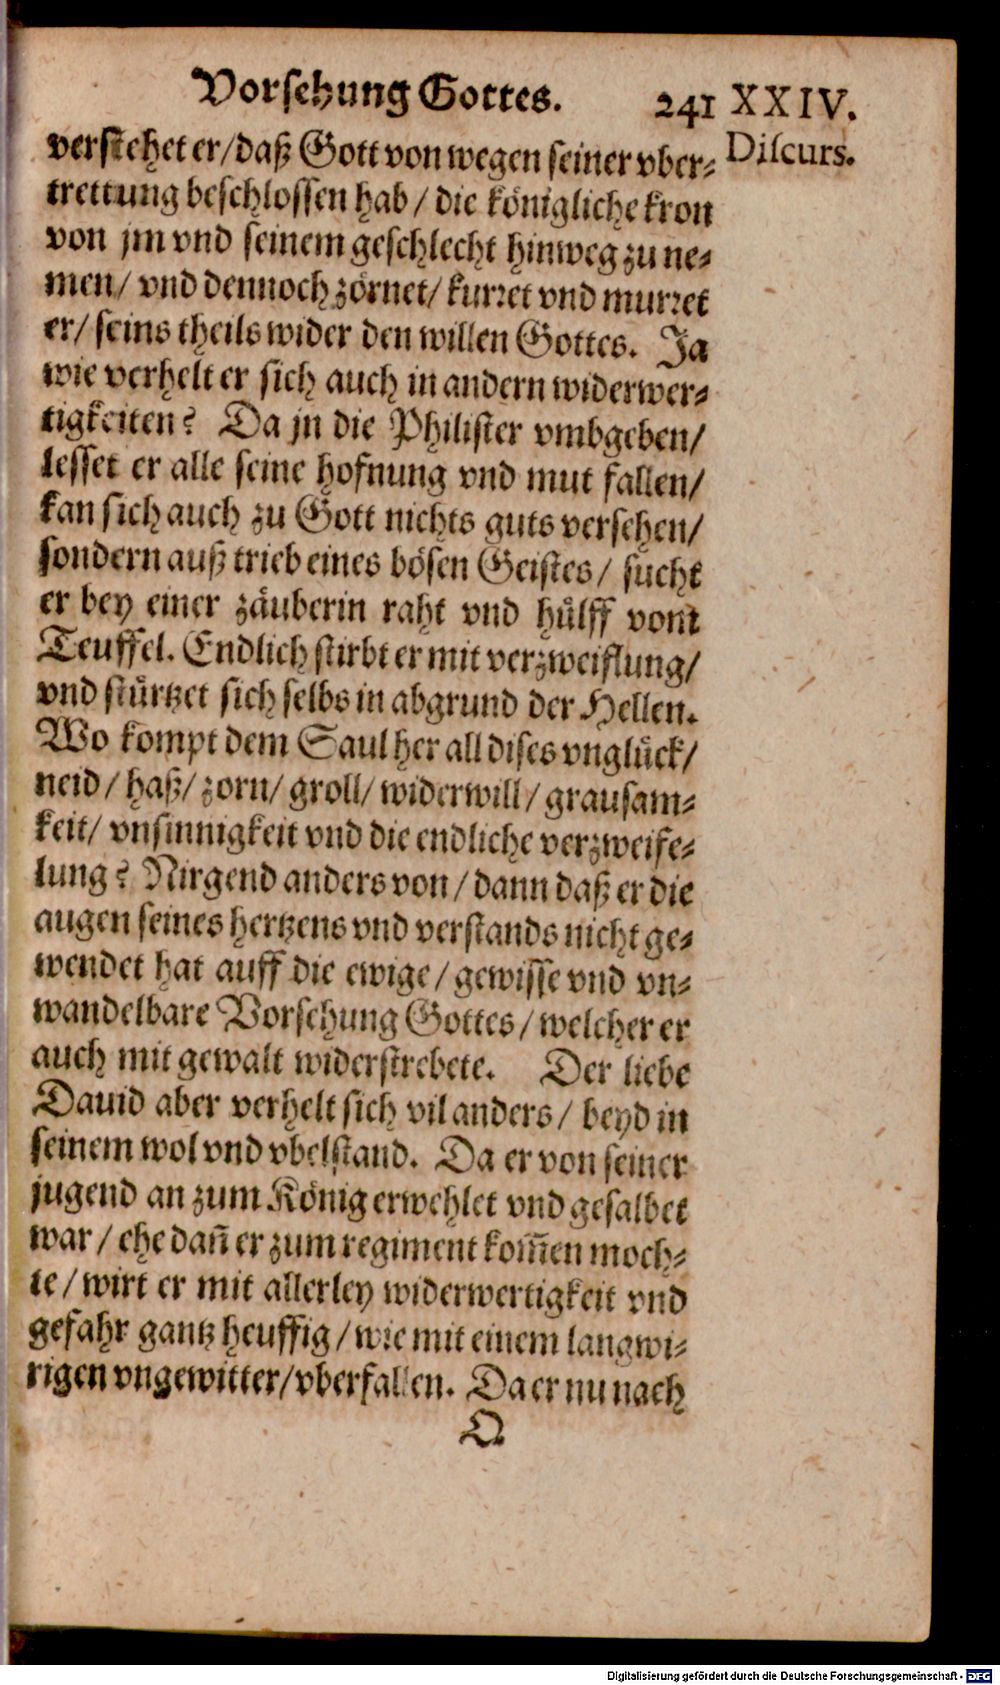 Vorsehung Gottes. 241 XXIV.
Discurs.
verstehet er/daß Gott von wegen seiner vber-
trettung beschlossen hab / die königliche kron
von jm vnd seinem geschlecht hinweg zu ne-
men/ vnd dennoch zörnet/ kurret vnd murret
er/ seins theils wider den willen Gottes. Ja
wie verhelt er sich auch in andern widerwer-
tigkeiten? Da jn die Philister vmbgeben/
lesset er alle seine hofnung vnd mut fallen/
kan sich auch zu Gott nichts guts versehen/
sondern auß trieb eines bösen Geistes / sucht
er bey einer zäuberin raht vnd hülff vom
Teuffel. Endlich stirbt er mit verzweiflung/
vnd stürtzet sich selbs in abgrund der Hellen.
Wo kompt dem Saul her all dises vnglück/
neid / haß/ zorn/ groll/ widerwill / grausam-
keit/ vnsinnigkeit vnd die endliche verzweife-
lung? Nirgend anders von / dann daß er die
augen seines hertzens vnd verstands nicht ge-
wendet hat auff die ewige / gewisse vnd vn-
wandelbare Vorsehung Gottes / welcher er
auch mit gewalt widerstrebete. Der liebe
Dauid aber verhelt sich vil anders / beyd in
seinem wol vnd vbelstand. Da er von seiner
jugend an zum König erwehlet vnd gesalbet
war / ehe dañ er zum regiment kom̃en moch-
te / wirt er mit allerley widerwertigkeit vnd
gefahr gantz heuffig / wie mit einem langwi-
rigen vngewitter/vberfallen. Da er nu nach
Q
Digitalisierung gefördert durch die Deutsche Forschungsgemeinschaft - DFG